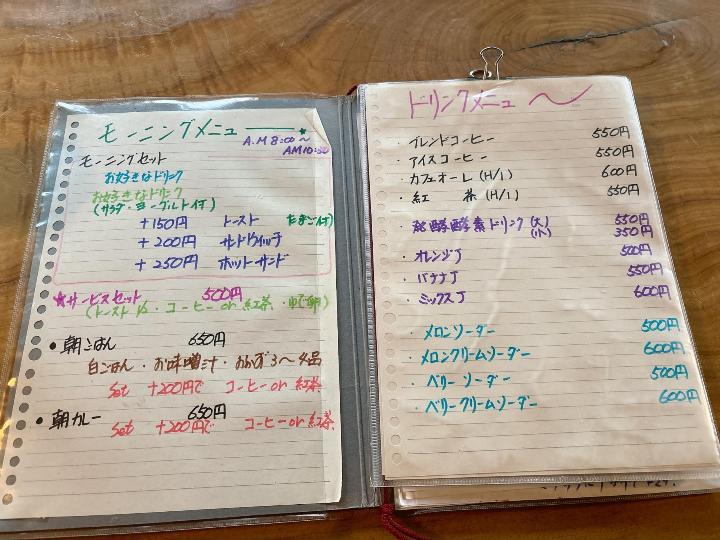 モーニングメニュー
A.M 8:00〜
AM10:30
モーニングセット
お好きなドリンク
お好きなドリンク
(サラダ・ヨーグルト付)
+150円 トースト たまご付)
+200円 サンドウィッチ
+250円 ホットサンド
★サービスセット 500円
(トースト1/2・コーヒー or 紅茶・ゆで卵)
• 朝ごはん 650円
白ごはん・お味噌汁・おかず3〜4品
Set +200円で コーヒー or 紅茶
• 朝カレー 650円
Set +200円で コーヒー or 紅茶
ドリンクメニュー 〜
・ブレンドコーヒー 550円
・アイスコーヒー 550円
・カフェオーレ (H/I) 600円
・紅 茶 (H/I) 550円
・発酵酵素ドリンク(大) 550円
(小) 350円
・オレンジJ 500円
・バナナJ 550円
・ミックスJ 600円
・メロンソーダー 500円
・メロンクリームソーダー 600円
・ベリーソーダー 500円
・ベリークリームソーダー 600円